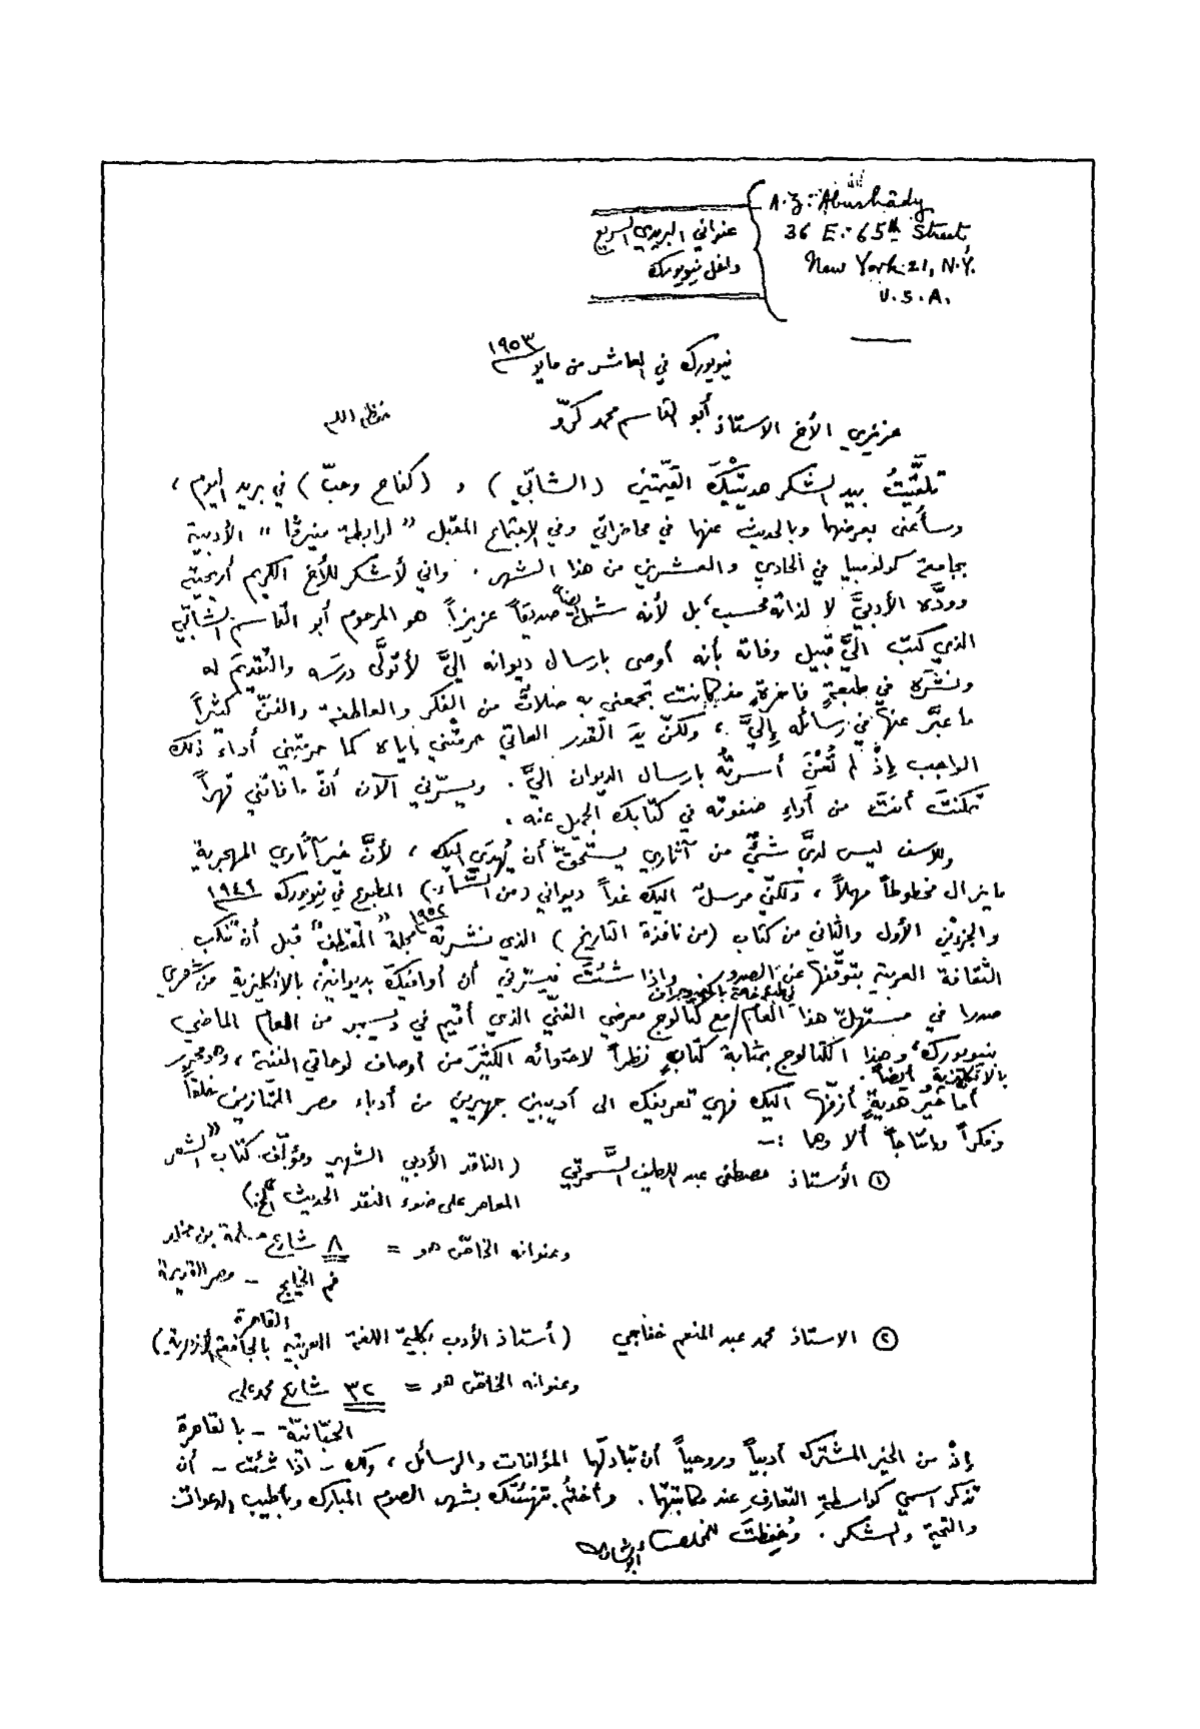 A. Z. Abushâdy
36 E. 65th Street,
New York 21, N.Y.
U.S.A.
عنواني البريدي السريع
داخل نيويورك
نيويورك في العاشر من مايو ١٩٥٣
عزيزي الأخ الاستاذ أبو القاسم محمد كرّو حفظه الله
تلقَّيتُ بيد الشكر هديتيْكَ القيّمتين (الشابّي) و (كفاح وحبّ) في بريد اليوم،
وسأُعنى بعرضهما وبالحديث عنهما في محاضراتي وفي الاجتماع المقبل "لرابطة منيرفا" الأدبية
بجامعة كولومبيا في الحادي والعشرين من هذا الشهر. واني لأشكر للأخ الكريم أريحيته
وودَّه الأدبيَّ لا لذاته فحسب، بل لأنه شمل أيضاً صديقاً عزيزاً هو المرحوم أبو القاسم الشابّي
الذي كتب اليَّ قبيل وفاته بأنه أوصى بارسال ديوانه إليَّ لأتولَّى درسَه والتقديمَ له
ونشْرَه في طبعةٍ فاخرةٍ، فقد كانت تجمعني به صلاتٌ من الفكر والعاطفة والفنّ كثيراً
ما عبَّر عنها في رسائله إليَّ، ولكنّ يدَ القدر العاتي حرمتْني إياه كما حرمتْني أداء ذلك
الواجب إذْ لم تُعْنَ أسرتُه بارسال الديوان اليَّ. ويسرّني الآن أنّ ما فاتني قهراً
تمكنتَ أنتَ من أداءِ صفوته في كتابك الجميل عنه.
وللأسف ليس لديَّ شيءٌ من آثاري يستحقّ أن يُهدَى اليك، لأنَّ خير آثاري المهجرية
ما يزال مخطوطاً مهملاً، ولكنّي مرسلٌ اليك غداً ديواني (من السَّماء) المطبوع في نيويورك ١٩٤٩
والجزءين الأول والثاني من كتاب (من نافذة التاريخ) الذي نشرته ١٩٥٢ مجلة "المقتطف" قبل أن تُنكب
الثقافة العربية بتوقّفها عن الصدور. واذا شئتَ فيسرّني أن أوافيكَ بديوانيْن بالإنكليزية من شعري
صدرا في مستهلّ هذا العام / مع كتالوج معرضي الفنّي الذي أقيم في ديسمبر من العام الماضي
بنيويورك، وهذا الكتالوج بمثابة كتابٍ نظراً لاحتوائه الكثيرَ من أوصاف لوحاتي الفنية، وهو محرر
بالانكليزية أيضاً.
أما خيرُ هديةٍ أزفّها اليك فهي تعريفك الى أديبين جهيرين من أدباء مصر الممتازين خلقاً
وفكراً وإنتاجاً ألا وهما :—
① الأستاذ مصطفى عبد اللطيف السَّحرتي (الناقد الأدبي الشهير ومؤلّف كتاب "الشعر
المعاصر على ضوء النقد الحديث" الخ.)
وعنوانه الخاصّ هو = ٨ شارع مسلمة بن
فم الخليج — مصر القديمة
القاهرة
② الاستاذ محمد عبد المنعم خفاجي (أستاذ الأدب بكلية اللغة العربية بالجامعة الأزهرية)
وعنوانه الخاصّ هو = ٣٢ شارع محمد علي
— بالقاهرة
إذْ من الخير المشترك أدبياً وروحياً أن تبادلَهما المؤلفات والرسائل، ولك — اذا شئت — أن
تذكر اسمي كواسطةِ التعارفِ عند مكاتبتهما. وأختم بتهنئتك بشهر الصوم المبارك وبأطيب الدعوات
والتحية والشكر. وحُفِظتَ للمخلص أبو شادي